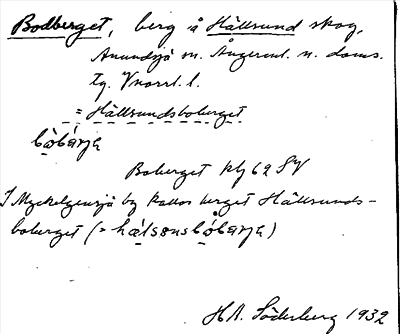 Bodberget, berg å Hällsund skog,
Anundsjö sn. Ångerml. n. doms.
tg. Vnorrl. l.
= Hällsundsboberget
Boberget klg 62 SV
I Myckelgensjö by kallas berget Hällsunds-
boberget (=
H A. Söderberg 1932